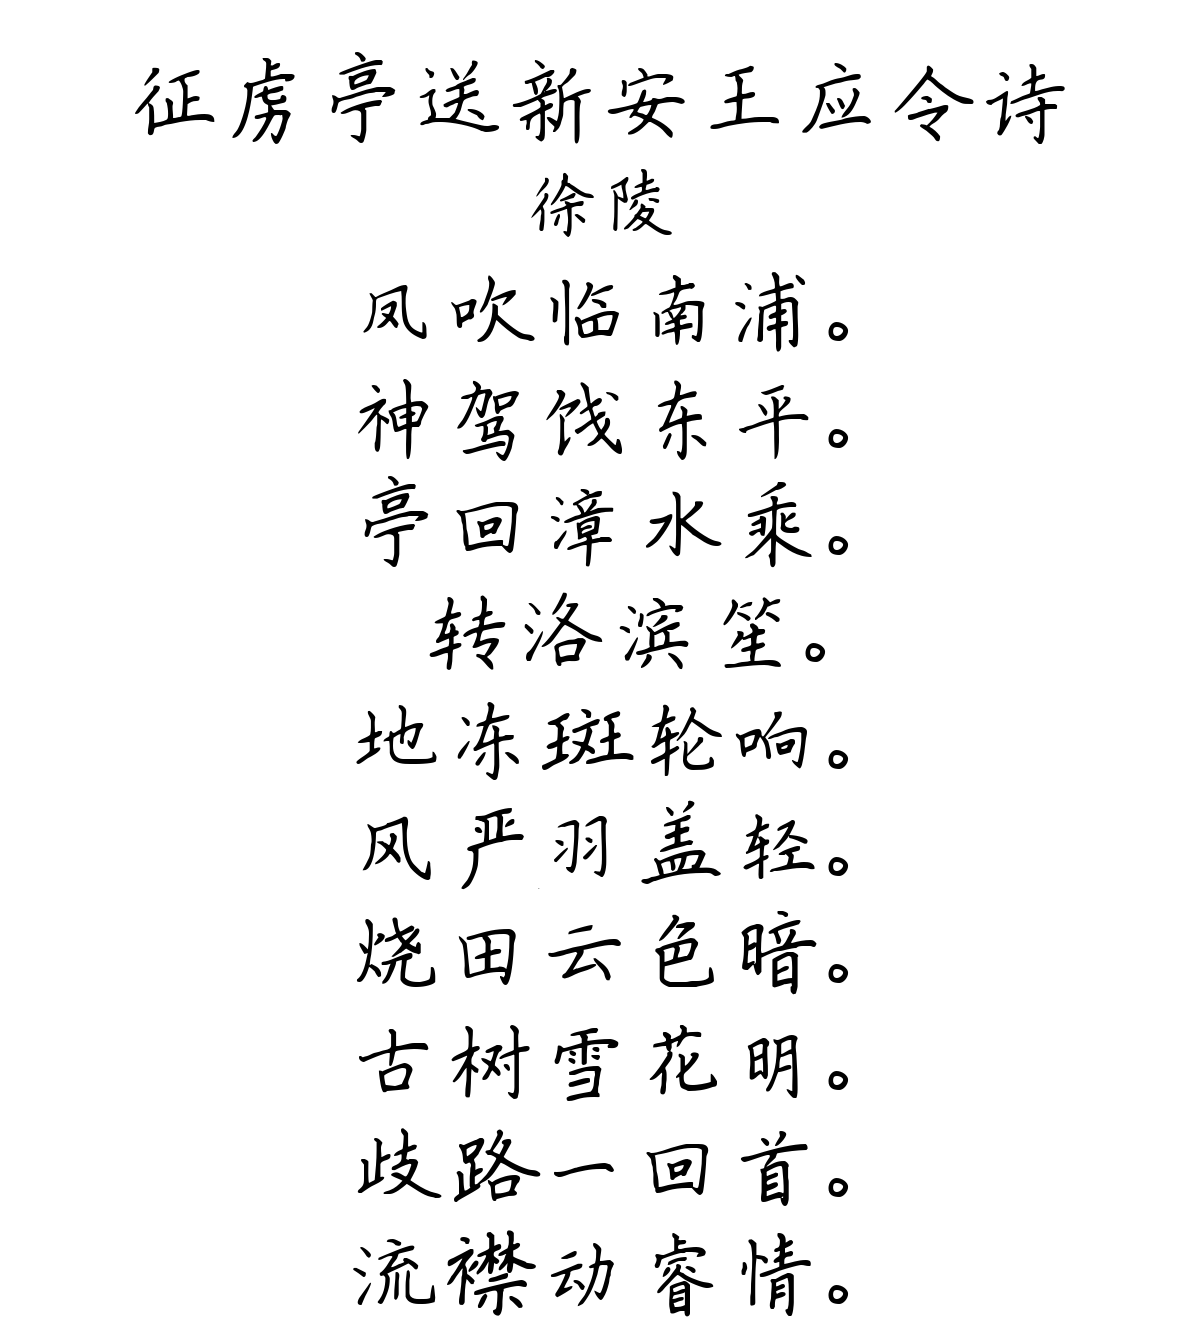 征虏亭送新安王应令诗
徐陵
凤吹临南浦。
神驾饯东平。
亭回漳水乘。
转洛滨笙。
地冻斑轮响。
风严羽盖轻。
烧田云色暗。
古树雪花明。
歧路一回首。
流襟动睿情。